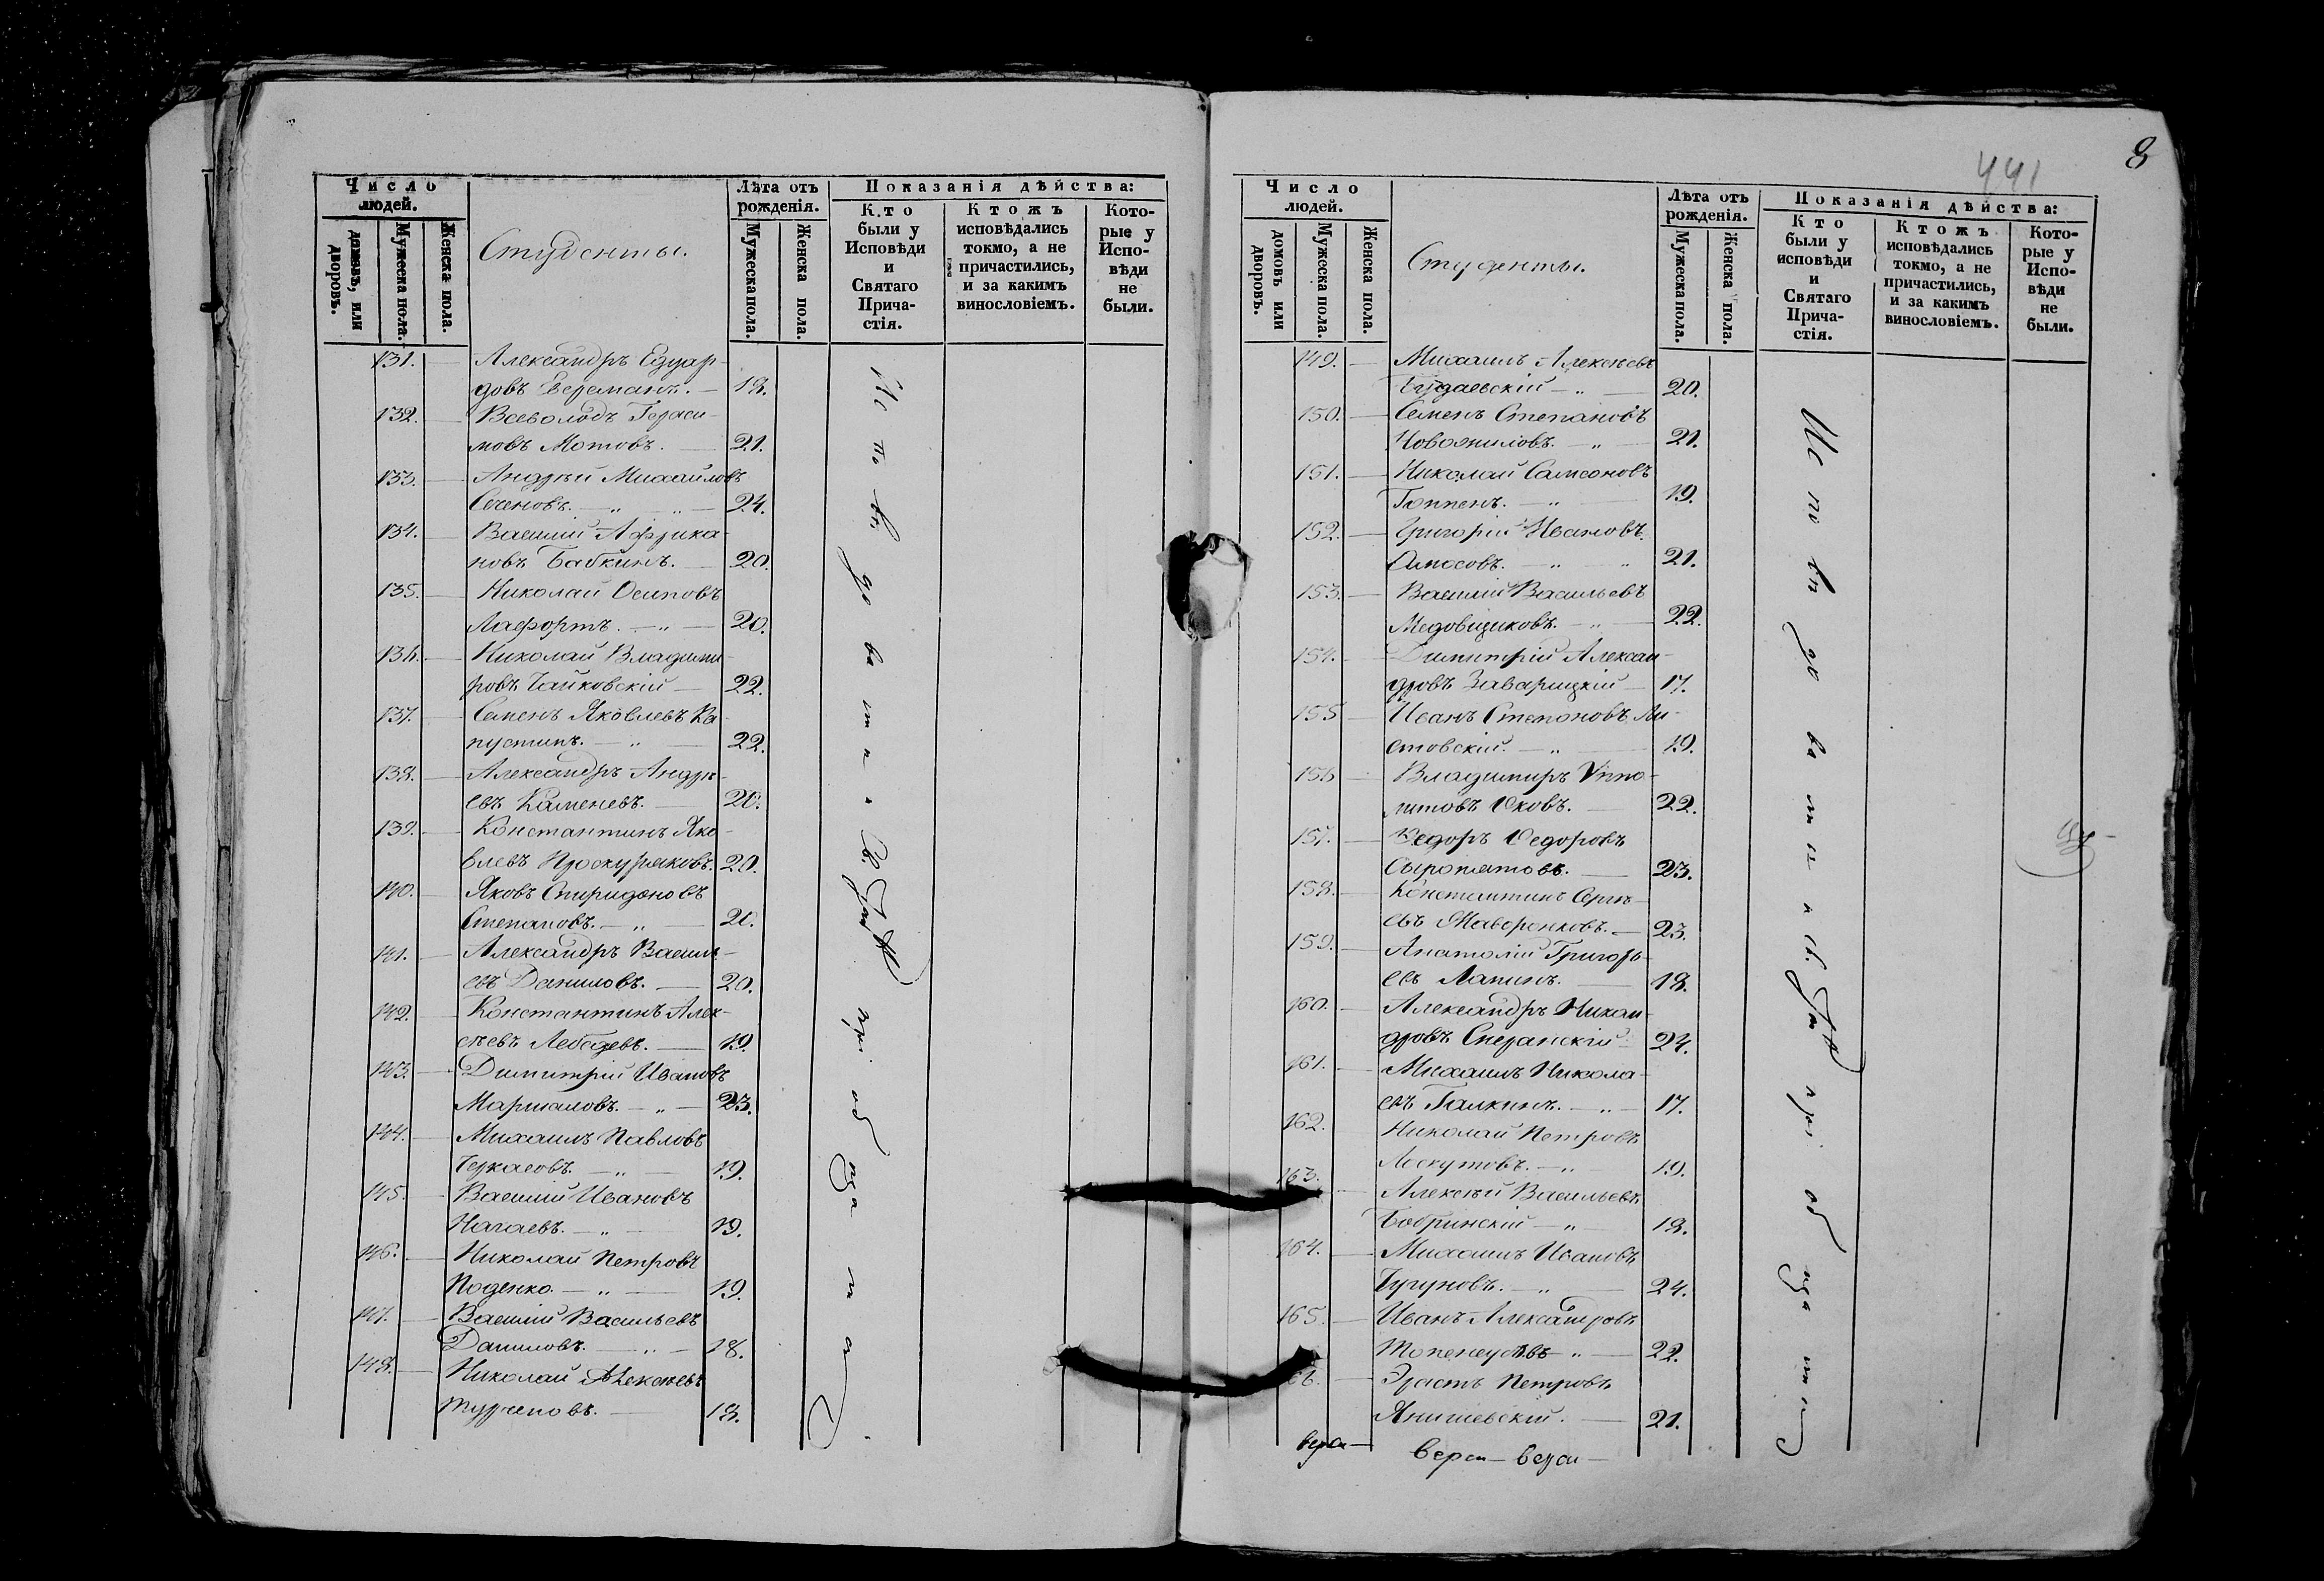 Число людей.
домовъ, или дворовъ.
Мужеска пола.
Женска пола.
Студенты.
Лѣта отъ рожденія.
Мужеска пола.
Женска пола.
Показанія дѣйства:
Кто были у Исповѣди и Святаго Прича-стія.
Ктожъ исповѣдались токмо, а не причастились, и за какимъ винословіемъ.
Кото-рые у Испо-вѣди не были.
131. — Александръ Едуар-
довъ — 18.
132. — Всеволодъ Гераси-
мовъ Мотовъ. — 21.
133. — Андрѣй Михайловъ
Сеченовъ. — „ — 24.
134. — Василій Африка-
новъ Бабкинъ. — 20.
135. — Николай Осиповъ
Лафортъ. — „ — 20.
136. — Николай Владими-
ровъ Чайковскій — 22.
137. — Семенъ Яковлевъ Ка-
пустинъ. — „ — 22.
138. — Александръ Андрѣ-
евъ Каменевъ. — 20.
139. — Константинъ Яко-
влевъ Проскуряковъ. 20.
140. — Яковъ Спиридоновъ
Степановъ. — „ — 20.
141. — Александръ Василь-
евъ Даниловъ. — 20.
142. — Константинъ Алек-
сѣевъ Лебедевъ. — 19.
143. — Димитрій Ивановъ
Маршаловъ. — „ — 23.
144. — Михаилъ Павловъ
Черкасовъ. — „ — 19.
145. — Василій Ивановъ
Нагаевъ. — „ — 19.
146. — Николай Петровъ
Поденко. — „ — 19.
147. — Василій Васильевъ
Даниловъ. — „ — 18.
148. — Николай Алексѣевъ
Турченовъ. — 18.
Исповѣдовались и Св. Таинъ пріобщались
8
441
Число людей.
домовъ или дворовъ.
Мужеска пола.
Женска пола.
Студенты.
Лѣта отъ рожденія.
Мужеска пола.
Женска пола.
Показанія дѣйства:
Кто были у исповѣди и Святаго Прича-стія.
Ктожъ исповѣдались токмо, а не причастились, и за какимъ винословіемъ.
Кото-рые у Испо-вѣди не были.
149. — Михаилъ Алексѣевъ
Будаевскій — „ — 20.
150. — Семенъ Степановъ
Новожиловъ. — „ — 21.
151. — Николай Самсоновъ
Топпенъ. — „ — 19.
152. — Григорій Ивановъ
Амосовъ. — „ „ 21.
153. — Василій Васильевъ
Медовщиковъ. — „ — 22.
154. — Димитрій Алексан-
дровъ Заварицкій — 17.
155 — Иванъ Степановъ Ли-
стовскій. — „ — 19.
156 — Владимиръ Иппо-
литовъ Юковъ. — 22.
157. — Ѳедоръ Ѳедоровъ
Сыропятовъ. — 23.
158. — Константинъ Сергѣ-
евъ Жаворонковъ. — 23.
159. — Анатолій Григорь-
евъ Лапинъ. — 18.
160. — Александръ Никан-
дровъ Сперанскій — 24.
161. — Михаилъ Никола-
евъ Галкинъ. — „ — 17.
162. Николай Петровъ
Лоскутовъ. — „ — 19.
163. — Алексѣй Васильевъ
Бобринскій — „ — 18.
164. — Михаилъ Ивановъ
Чугуновъ. — „ — 24.
165. — Иванъ Александровъ
— „ — 22.
Эрастъ Петровъ
Янишевскій. — 21.
Исповѣдовались и Св. Таинъ пріобщались